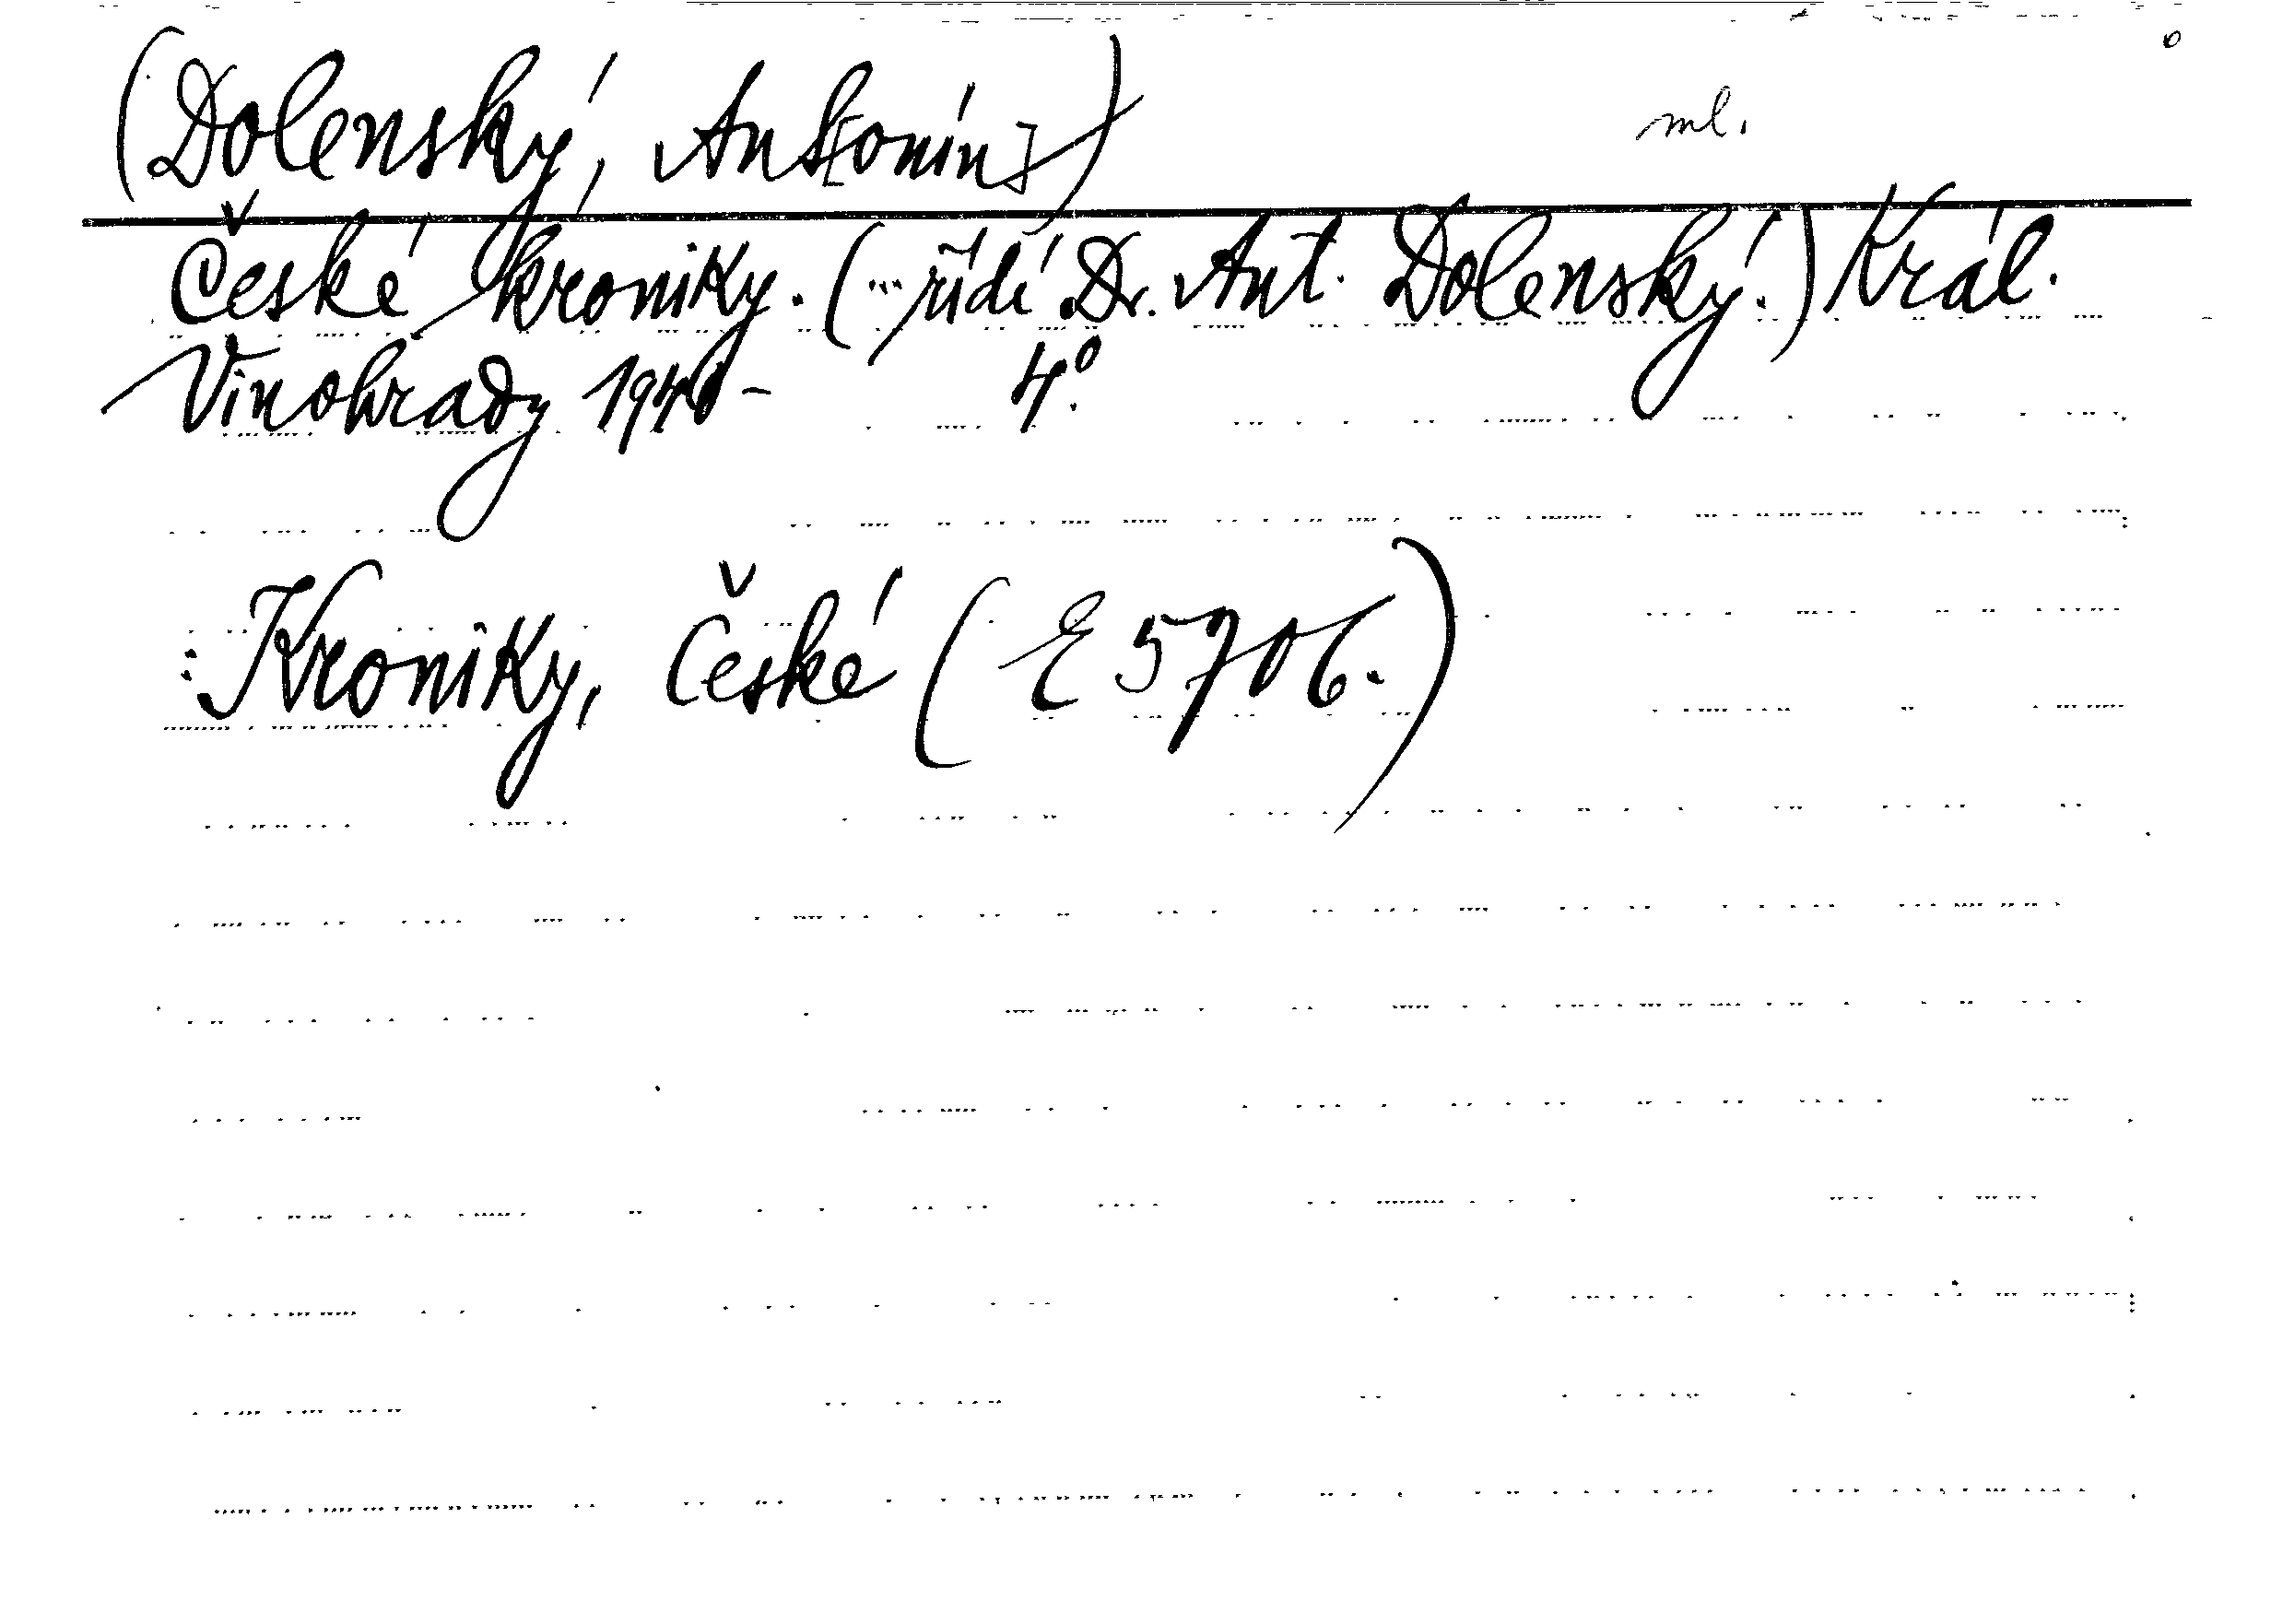 (Dolenský, Ant[onín]) ml.
České kroniky. (...řídí Dr. Ant. Dolenský.) Král.
Vinohrady - 4°.
Kroniky, České (E 5706.)